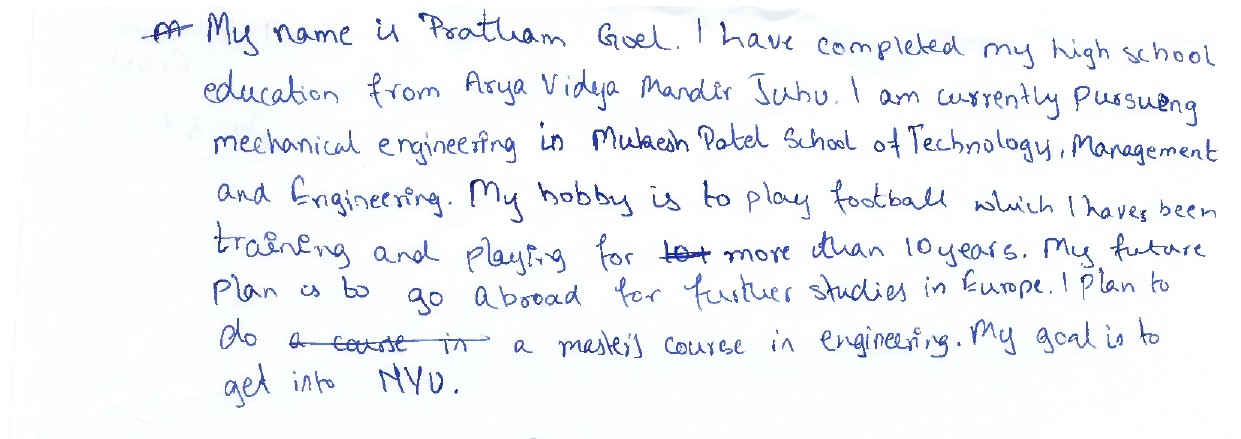 My name is Pratham Goel. I have completed my high school
education from Arya Vidya Mandir Juhu. I am currently pursueng
mechanical engineering in Mukesh Patel School of Technology, Management
and Engineering. My hobby is to play football which I haves been
traineng and playing for more than 10 years. My future
Plan is to go abroad for further studies in Europe. I plan to
do a course in a master's course in engineering. My goal is to
get into NYU.